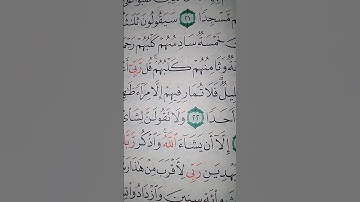 مَّسْجِدًا ٢١ سَيَقُولُونَ ثَلَٰثَ
خَمْسَةٌ سَادِسُهُمْ كَلْبُهُمْ رَجْمَ
وَثَامِنُهُمْ كَلْبُهُمْ قُل رَّبِّىٓ
لِيلٌ فَلَا تُمَارِ فِيهِمْ إِلَّا مِرَآءً ظَٰهِ
أَحَدًا ٢٢ وَلَا تَقُولَنَّ لِشَا۟ىْ
إِلَّآ أَن يَشَآءَ ٱللَّهُ وَٱذْكُر رَّبَّ
هْدِيَنِ رَبِّى لِأَقْرَبَ مِنْ هَٰذَا رَشَ
سِنِينَ وَٱزْدَادُوا۟